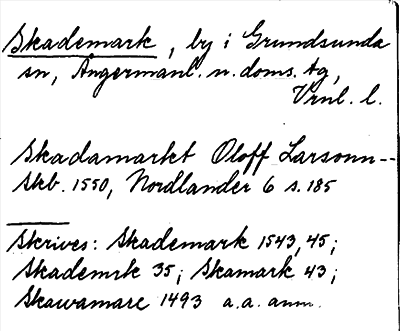 Skademark, by i Grundsunda
sn, Ångermanl. n. doms. tg,
Vrnl. l.
Skadamarkt Oloff Larsonn--
Skb. 1550, Nordlander 6 s. 185
Skrives: Skademark 1543, 45;
Skademrk 35; Skamark 43;
Skawamare 1493 a.a. anm.